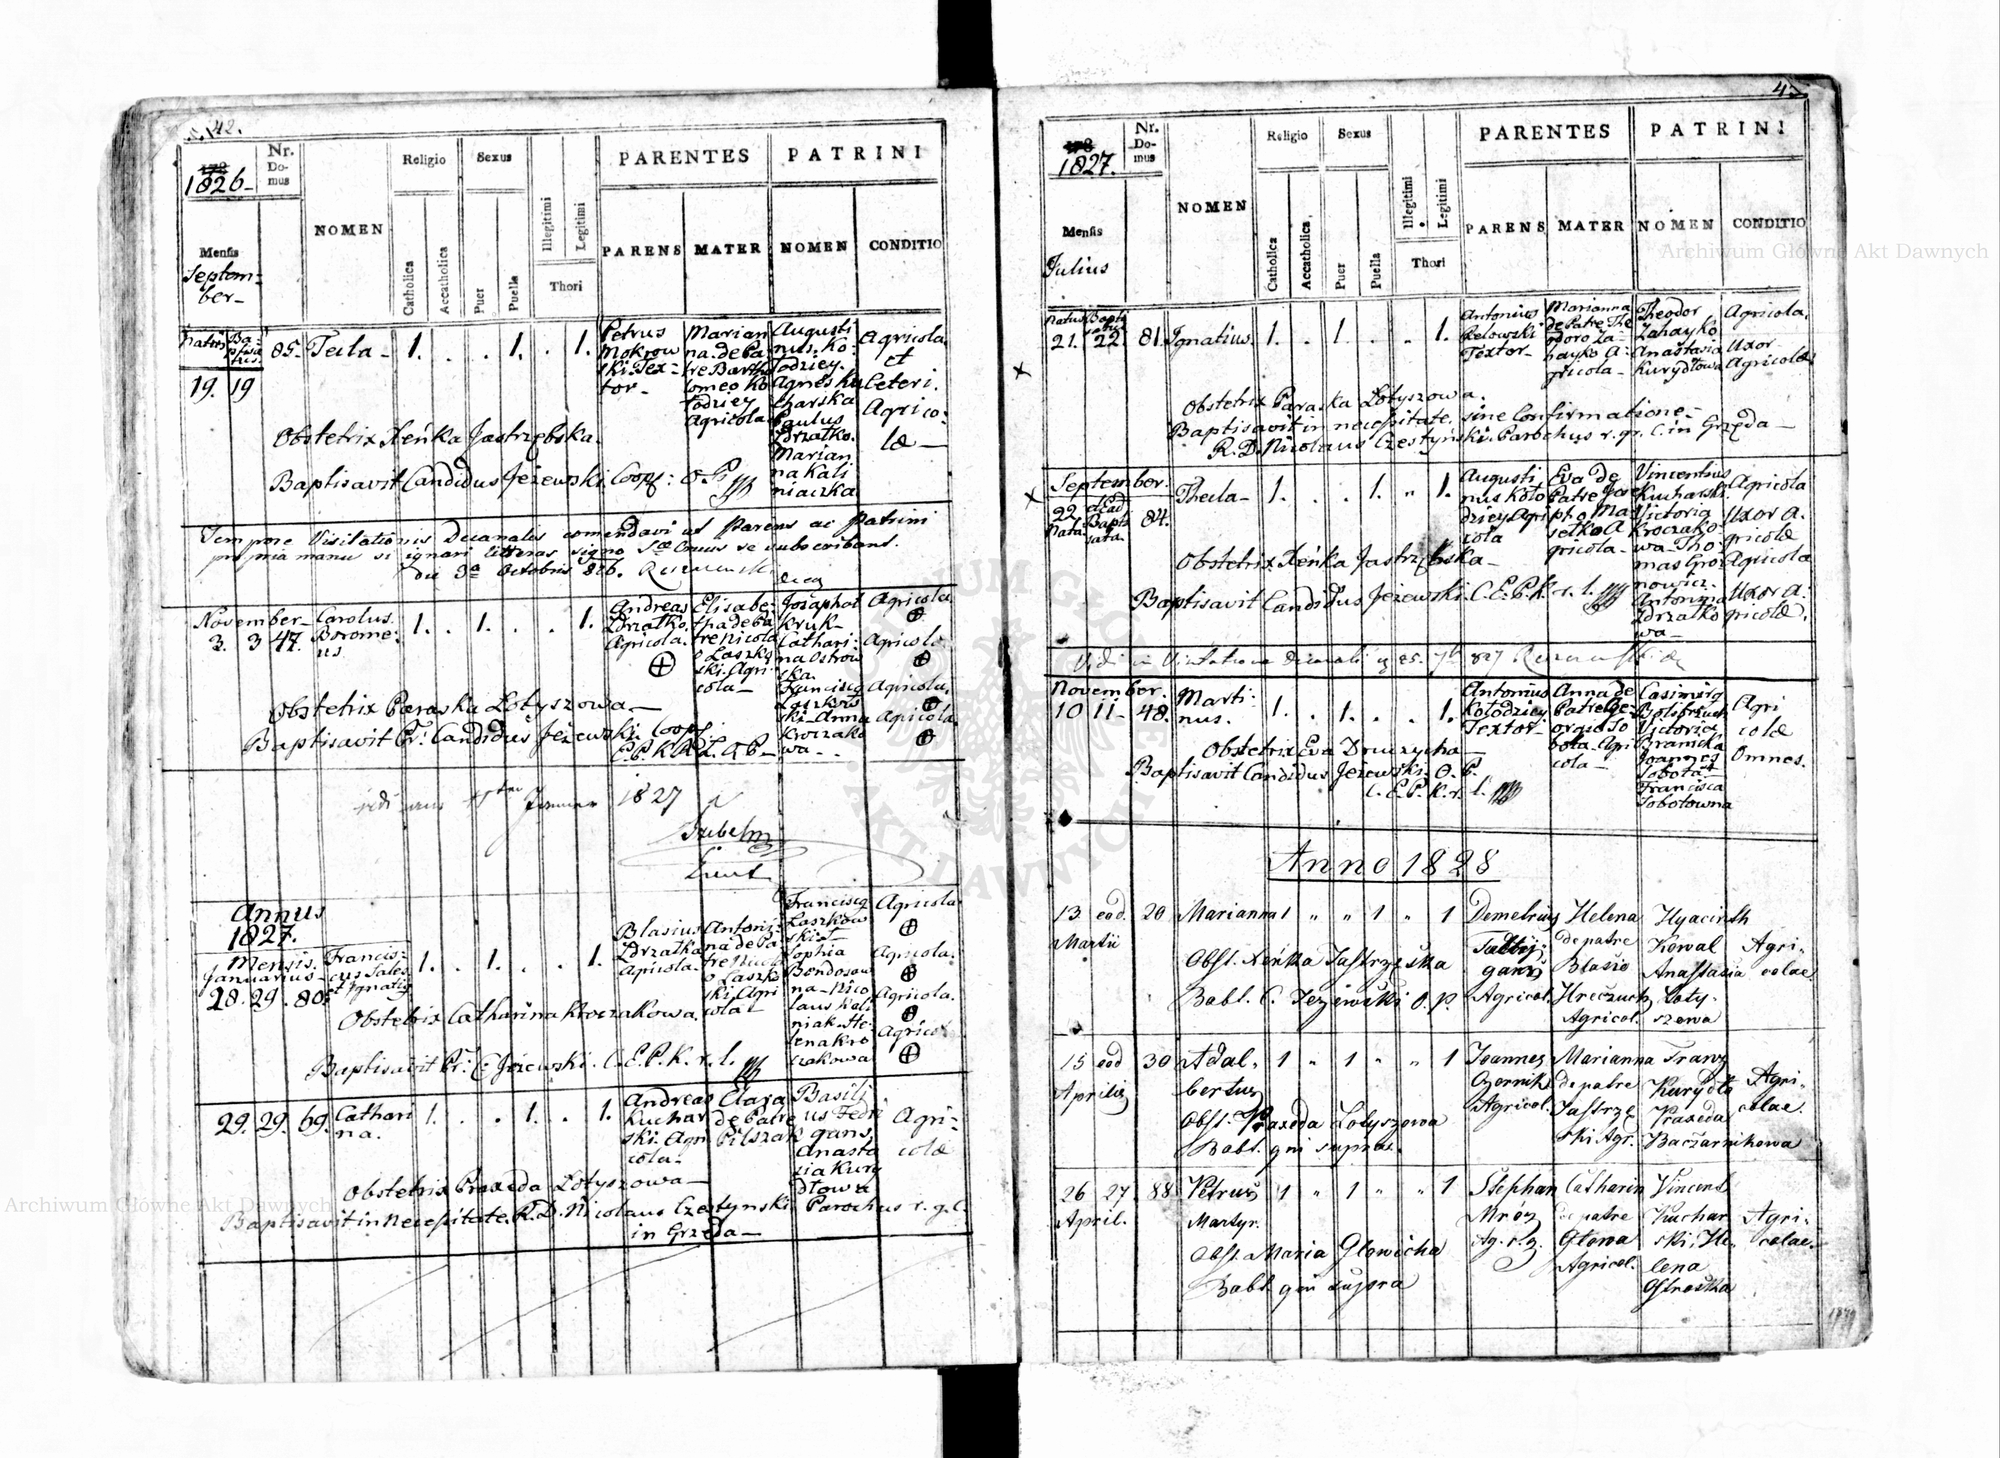 42.
178
1826
Nr. Domus
NOMEN
Religio
Sexus
PARENTES
PATRINI
Catholica
Accatholica
Puer
Puella
Illegitimi
Legitimi
Thori
PARENS
MATER
NOMEN
CONDITIO
Mensis
Septem-
ber
Natus
19. 19
85. Tecla 1. . . 1. . 1.
Petrus
Mokrow
ski Tex-
tor-
Marian
na. de Pa
tre Barth
lomeo Ko
łodziey
Agricola.
Augusti
nus. Ko:
łodziey.
Agnes Ku
charska
Paulus
Zdrzałko.
Marian
na Kali
niaczka
Agricola
et
Ceteri.
Agrico:
læ
Obstetrix Xeńka Jastrzębska.
Baptisavit Candidus Jeżewski Coop: O. P.
Tempore Visitationis Decanalis comendavi ut Parens ac Patrini
propria manu si ignari litteras signo Stæ Crucis se subscribant.
die 3a Octobris 826.
November
3. 3 47. Carolus
Borome:
us. 1. . 1. . . 1.
Andreas
Zdrzałko.
Agricola.
Elisabe:
tha de Pa
tre Nicola
o Laszko
ski. Agri
cola
Josaphat
Kruk
Cathari:
na Ostrow
ska.
Francisq
Laszkow
ski. Anna
Kroczako
wa
Agricola
Agricola
Agricola.
Agricola
Obstetrix Paraska Łotyszowa
Baptisavit Pr: Candidus Jeżewski Coop:
1827
Annus
1827.
Mensis.
Januarius
28. 29. 80. Francis-
cus Sales.
et Ignatis 1. . 1. . . 1.
Blasius
Zdrzałka
Agricola.
Antoni:
na de Pa
tre Nicola
o Laszko
ski. Agri
cola
Francisq
Laszkow
ski et
Sophia
Bondosow
na Nico
laus Kali
niak. He:
lena Kro
czakowa
Agricola
Agricola.
Agricola.
Agricola
Obstetrix Catharina Kroczakowa.
Baptisavit Pr: C. Jeżewski. C. E. P. K. r. l.
29. 29. 69. Cathari
na. 1. . . 1. . 1.
Andreas
Kuchar
ski. Agri
cola.
Clara
de Patre
Pilszak
Basili
us Fedri
gans,
Anasta
zia Kury
dłowa
Agri-
colæ
Obstetrix Praxeda Łotyszowa
Baptisavit in Necessitate R. D. Nicolaus Czestynski Parochus r. g. c.
in Grzęda
178
1827.
Nr. Domus
NOMEN
Religio
Sexus
PARENTES
PATRINI
Catholica
Accatholica
Puer
Puella
Illegitimi
Legitimi
Thori
PARENS
MATER
NOMEN
CONDITIO
Mensis
Julius
Natus
21. 22. 81. Ignatius. 1. . 1. . . 1.
Antonius
Zelowski
Textor
Marianna
de Patre The
odoro Za-
hayko A:
gricola
Theodor
Zahayko
Anastasia
Kurydłowa
Agricola.
Uxor
Agricolæ
Obstetrix Paraska Łotyszowa.
Baptisavit in necessitate. sine Confirmatione
R. D. Nicolaus Czestynski. Parochus r. gr. C. in Grzęda
September.
22 84. Thecla 1. . . 1. 1.
Augusti
nus Koło
dziey Agri
cola
Eva de
Patre Jose
pho Ma
selko A
gricola
Vincentius
Kucharski.
Victoria
Kroczako
wa Tho
mas Gro
nowicz.
Antonina
Zdrzałko
wa
Agricola
Uxor A.
gricolæ
Agricola
Uxor A:
gricolæ.
Obstetrix Xeńka Jastrzębska
Baptisavit Candidus Jeżewski. C. E. P. K. r. l.
November.
10 11 48. Marti-
nus. 1. . 1. . . 1.
Antonius
Kołodziey
Textor
Anna de
Patre Ge-
orgio So
bota. Agri
cola
Casimirq
Victoria
Branicka
Joannes
Sobota
Francisca
Sobotowna
Agri
colæ
Omnes.
Obstetrix Eva Druczycha
Baptisavit Candidus Jeżewski O. P.
C. E. P. K. r. l.
Anno 1828
13 eod. 20 Marianna 1 " " 1 " 1
Martii
Demetrius
Agricol.
Helena
de patre
Blasio
Hreczuch
Agricol.
Hyacinth
Kowal
Anastasia
Łoty-
szowa
Agri-
colae
Obst. Xeńka Jastrzębska
Babt. C. Jeżewski O. P.
15 eod 30 Adal-
bertus 1 " 1 " " 1
Aprilis
Joannes
Ozornik
Agricol.
Marianna
de patre
Jastrzę
ski Agr.
Franz
Kurydło
Praxeda
Baczarnikowa
Agri-
colae.
Obst. Praxeda Łotyszowa
Babt. qui supra.
26 27 88 Petrus
Martyr. 1 " 1 " " 1
April.
Stephan
Mróz
Catharin
de patre
Głowa
Agricol.
Vincent
Kuchar
ski, He-
lena
Ostroska
Agri-
colae.
Obst. Maria Głowicha
Babt qui supra
Archiwum Główne Akt Dawnych
Archiwum Główne Akt Dawnych